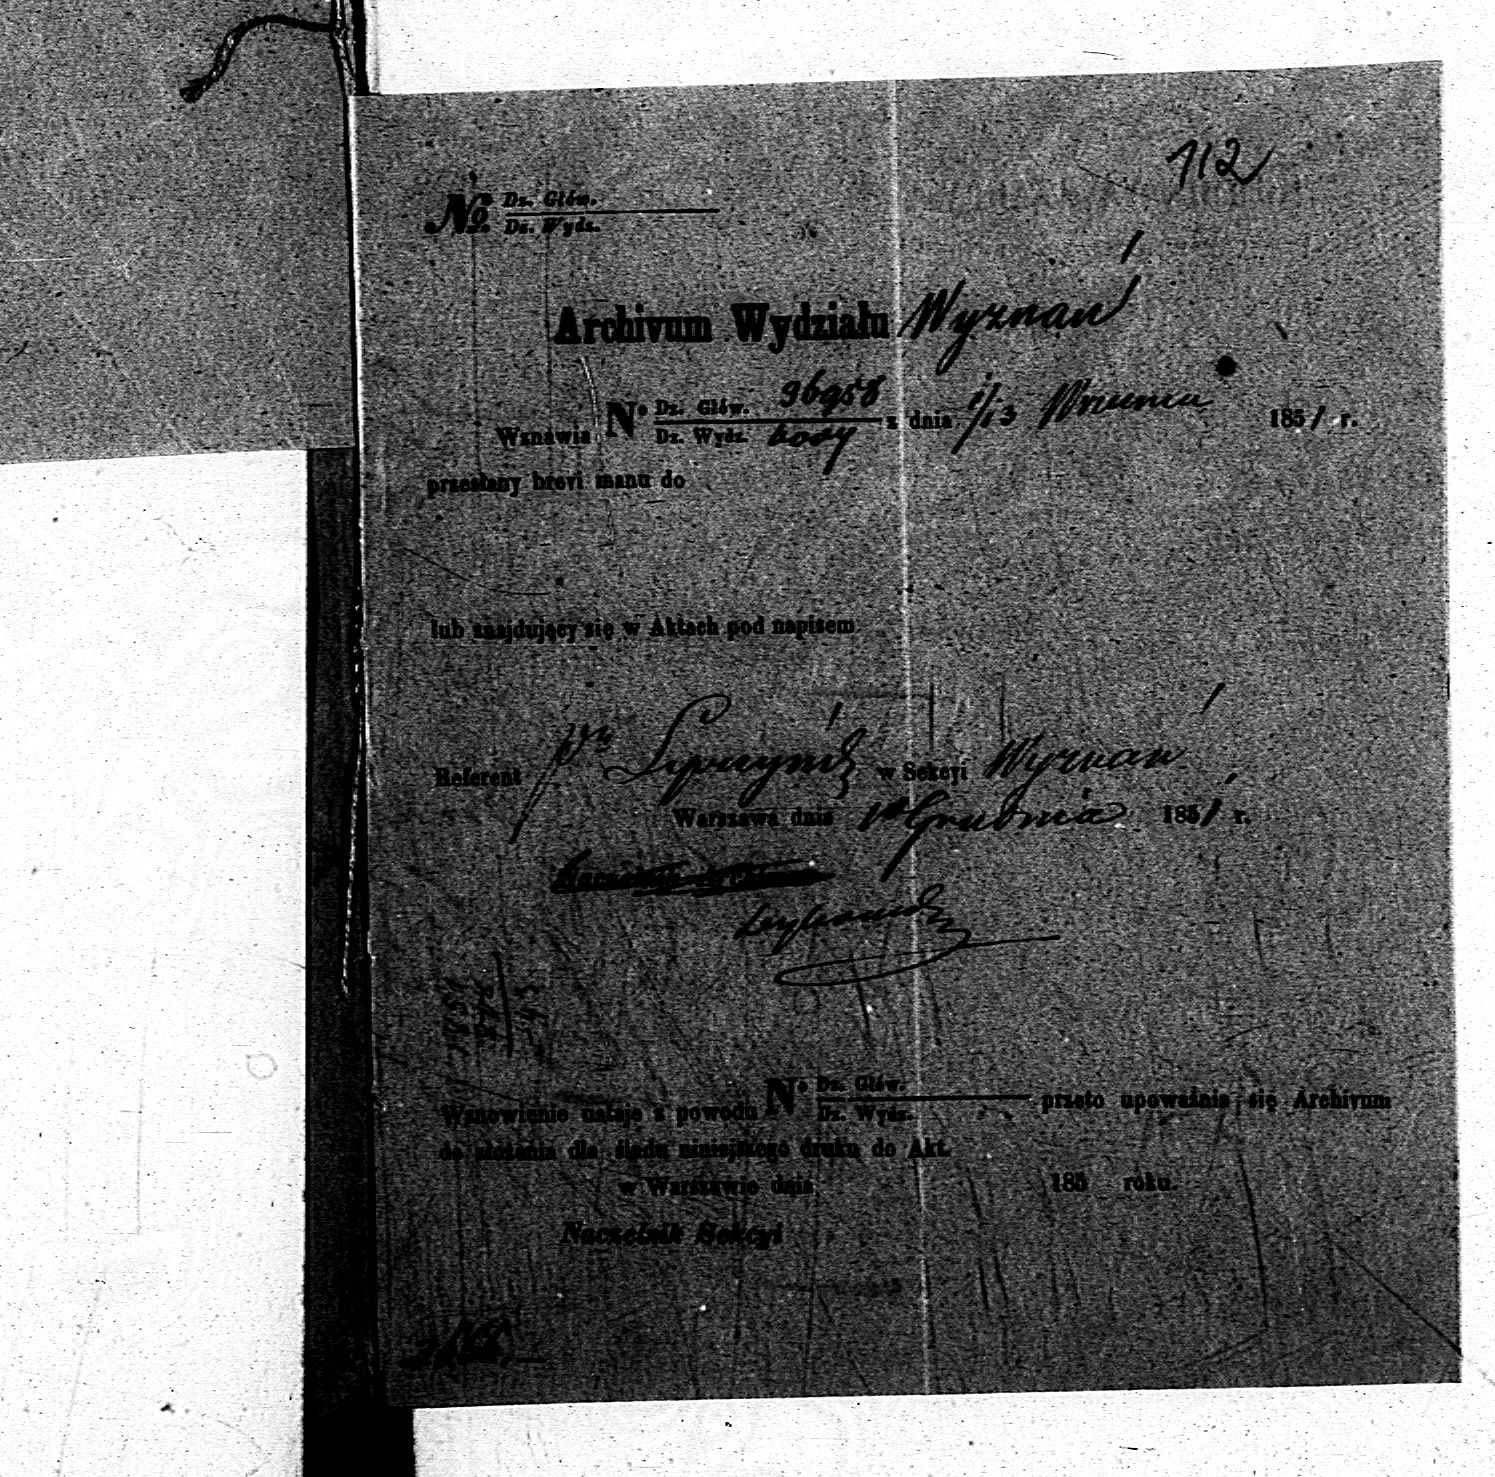 112
№ Dz. Głów.
Dz. Wydz.
Archivum Wydziału Wyznań
Wznawia N° Dz. Głów. 96958 z dnia 1/13 Września 1851 r.
Dz. Wydz.
przesłany brevi manu do
lub znajdujący się w Aktach pod napisem
Referent w Sekcyi Wyznań
Warszawa dnia Grudnia 1851 r.
Wznowienie ustaje z powodu N° Dz. Głów. przeto upoważnia się Archivum
Dz. Wydz.
do złożenia dla śladu niniejszego druku do Akt.
w Warszawie dnia 185 roku.
Naczelnik Sekcyi